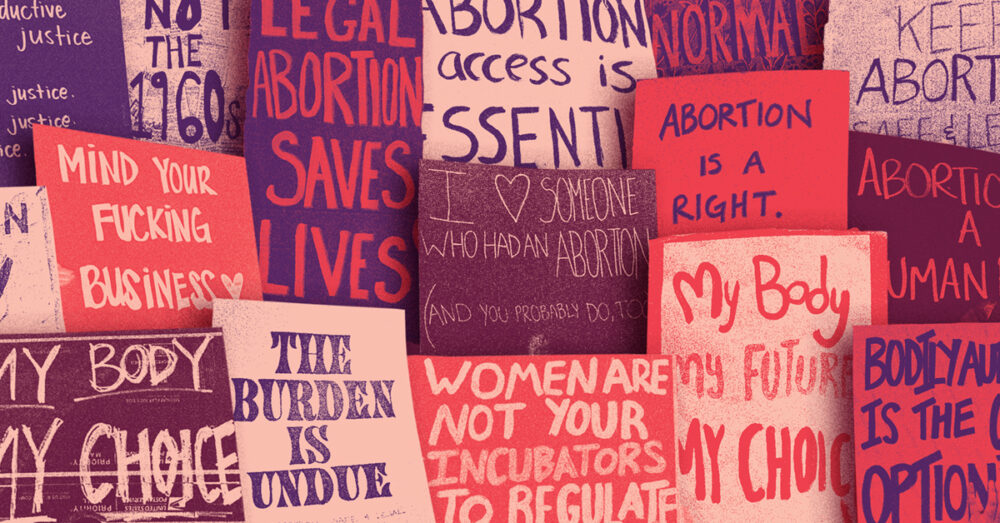 ductive
justice
justice.
justice
ce.
NOT
THE
1960s
LEGAL
ABORTION
SAVES
LIVES
ABORTION
access is
ESSENTI
NORMAL
KEEP
ABORT
SAFE & LE
MIND YOUR
FUCKING
BUSINESS ♡
I ♡ SOMEONE
WHO HAD AN ABORTION
(AND YOU PROBABLY DO, TOO
ABORTION
IS A
RIGHT.
ABORTIO
A
HUMAN
N
MY BODY
MY CHOICE
PRIORITY
MAIL
UNITED STATES
POSTAL SERVICE
PRIORITY
THE
BURDEN
IS
UNDUE
SAFE & LEGAL
WOMEN ARE
NOT YOUR
INCUBATORS
TO REGULATE
My Body
My FUTURE
MY CHOIC
BODILY AU
IS THE
OPTION